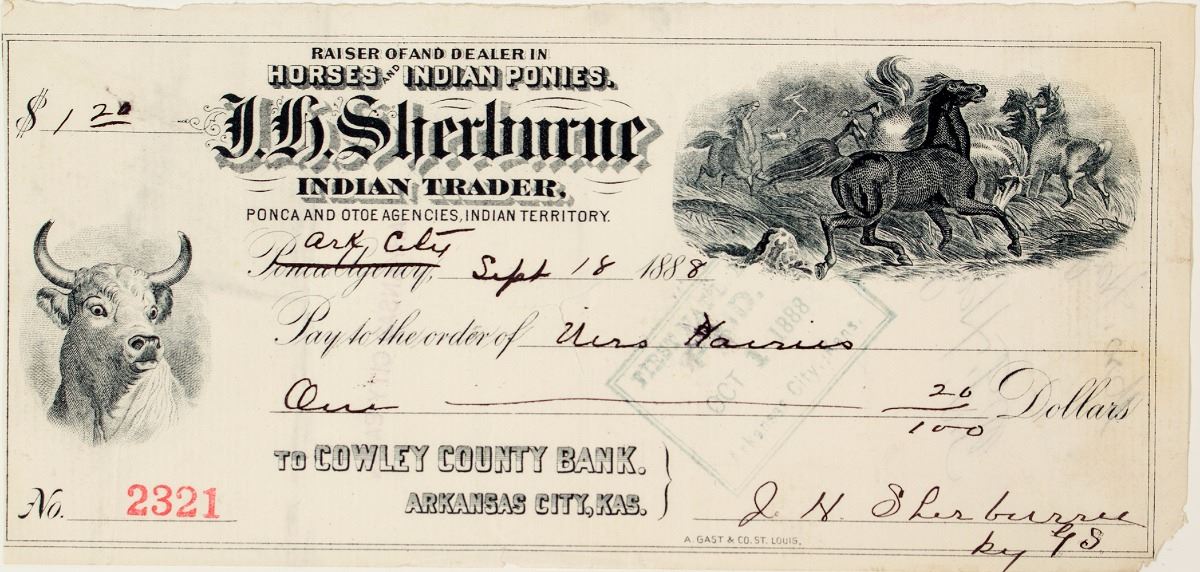 RAISER OF AND DEALER IN
HORSES AND INDIAN PONIES.
$ 1 20
J.H. Sherburne
INDIAN TRADER.
PONCA AND OTOE AGENCIES, INDIAN TERRITORY.
Ark City
Ponca Agency, Sept 18 1888
Pay to the order of
One 20/100 Dollars
FIRST NAT'L
OCT 1 1888
Arkansas City, Kans.
TO COWLEY COUNTY BANK.
ARKANSAS CITY, KAS.
No. 2321
J. H. Sherburne
by GS
A. GAST & CO. ST. LOUIS.